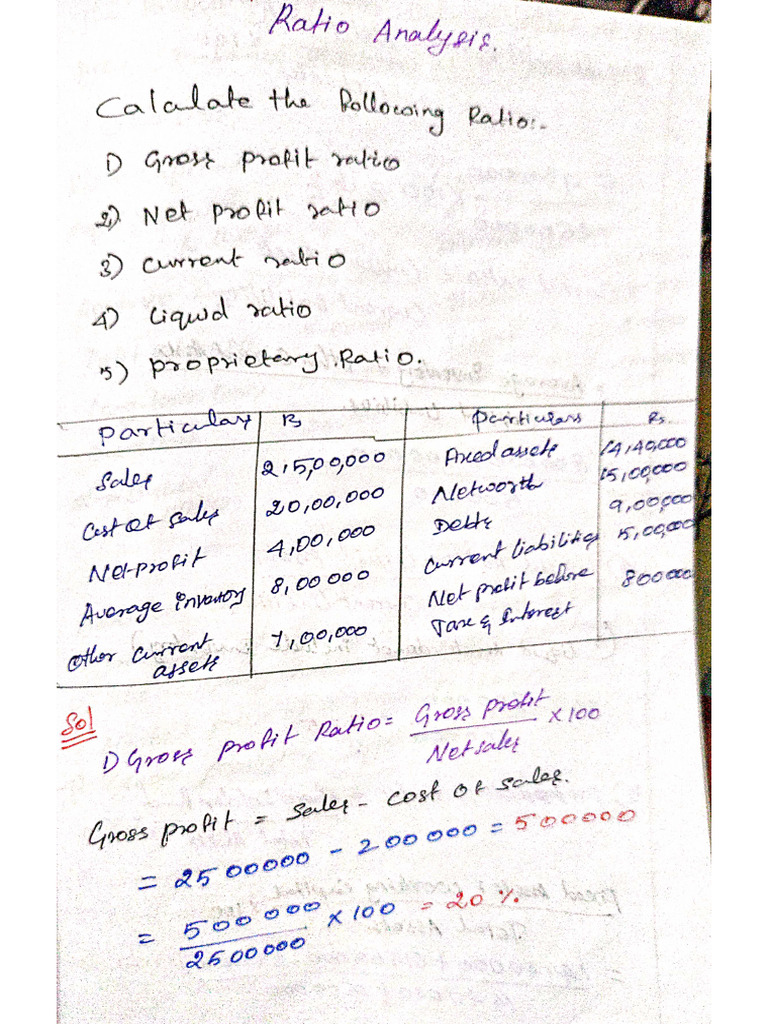 Ratio Analysis.
Calculate the following Ratio:-
1) Gross profit ratio
2) Net profit ratio
3) current ratio
4) Liquid ratio
5) proprietary Ratio.
particulars Rs particulars Rs.
Sales 25,00,000 Fixed assets 14,40,000
Cost of sales 20,00,000 Networth 15,00,000
Net-profit 4,00,000 Debts 9,00,000
Average inventory 8,00000 Current liabilities 5,00,000
Other current assets 7,00,000 Net profit before Tax & Interest 800000
Sol
1) Gross profit Ratio = Gross profit / Net sales × 100
Gross profit = Sales - cost of sales.
= 2500000 - 200 0000 = 500000
= 500 000 / 2500000 × 100 = 20 %